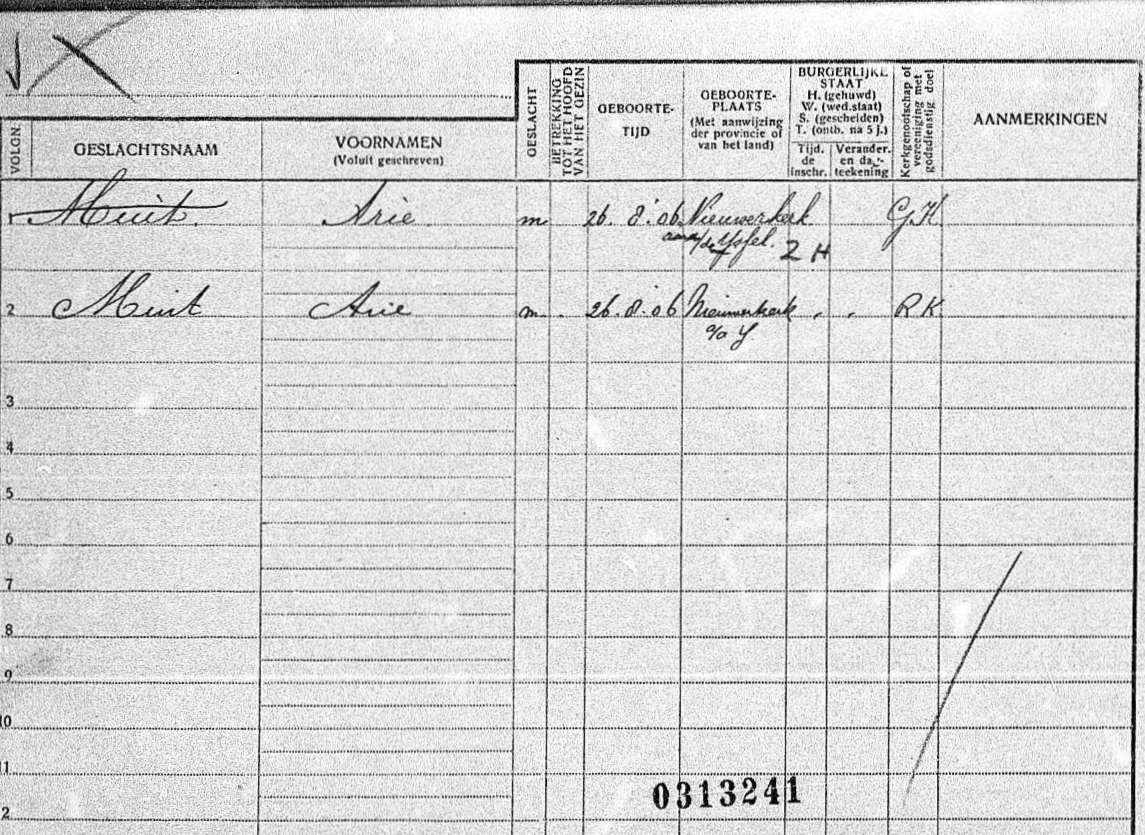 VOLGN.
GESLACHTSNAAM
VOORNAMEN
(Voluit geschreven)
GESLACHT
BETREKKING
TOT HET HOOFD
VAN HET GEZIN
GEBOORTE-
TIJD
GEBOORTE-
PLAATS
(Met aanwijzing
der provincie of
van het land)
BURGERLIJKE
STAAT
H. (gehuwd)
W. (wed.staat)
S. (gescheiden)
T. (ontb. na 5 j.)
Tijd.
de
inschr.
Verander.
en dag-
teekening
Kerkgenootschap of
vereeniging met
godsdienstig doel
AANMERKINGEN
1 Muit. Arie m 26. 8. 06 Nieuwerkerk G.K.
aan/de Yssel. Z H
2 Muit Arie m. 26. 8. 06 Nieuwerkerk R K.
a/a Y
3
4
5
6
7
8
9
10
11
0313241
2